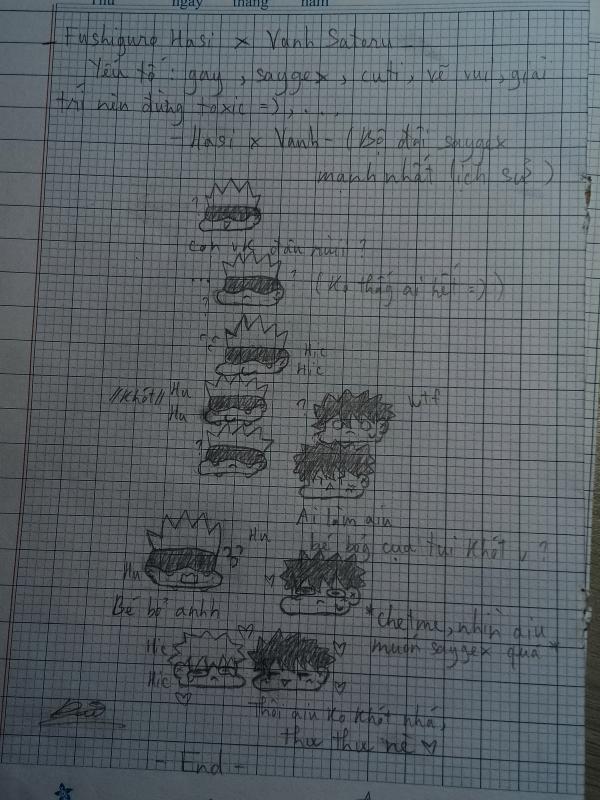 Thứ ngày tháng năm
- Fushiguro Hasi x Vanh Satoru -
Yếu tố : gay, saygex, cuti, vẽ vui, giải
trí nên đừng toxic =), . . .
- Hasi x Vanh - (Bộ đôi saygex
mạnh nhất lịch sử)
?
con vk đâu rùii ?
... ?
?
(Ko thấy ai hết =))
??
Hic
Hic
//Khót// Hu
Hu
?
wtf
?
Ai làm qiu
bé bỏng cuả tui khót v ?
Hu
??
Hu
Bé bỏ anhh
*chetme, nhìn qiu
muốn saygex quá*
Hic
Hic
thôi qiu ko khót nhá,
thw thw nè ♡
- End -